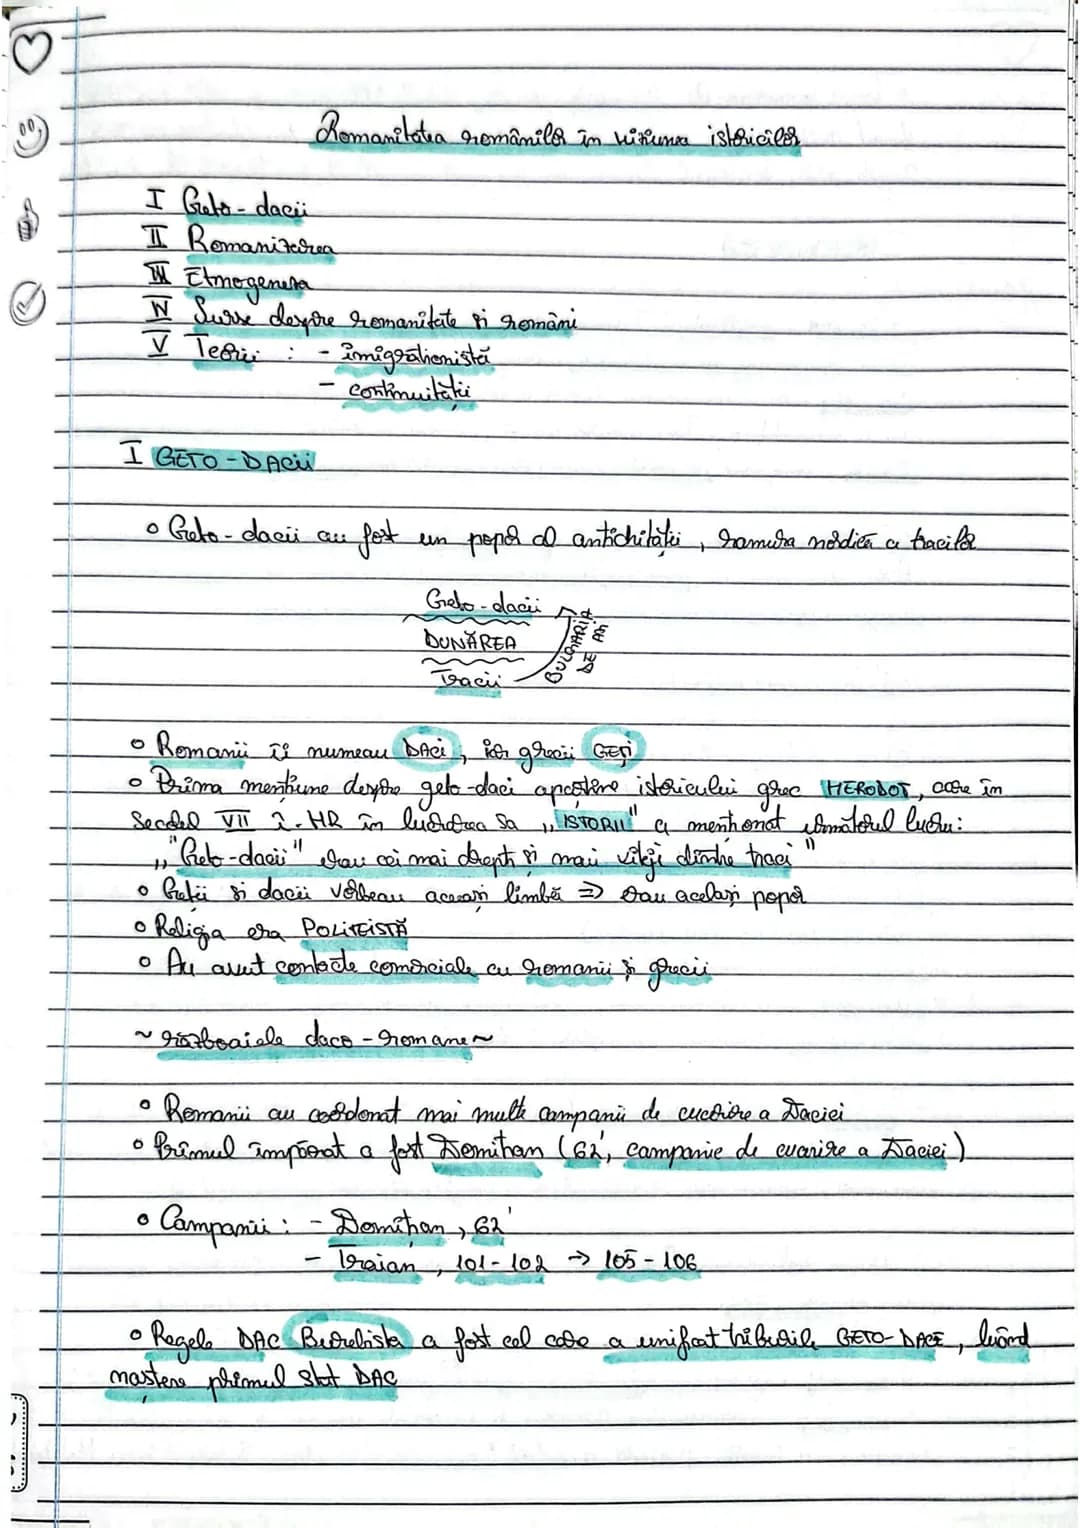 Romanitatea românilor în viziunea istoricilor
I Geto-dacii
II Romanizarea
III Etnogeneza
IV Surse despre romanitate și români
V Teorii : - imigraționistă
- continuității
I GETO-DACII
• Geto-dacii au fost un popor al antichității, ramura nordică a tracilor
Geto-dacii
DUNĂREA
Tracii
BULGARIA DE AZI
• Romanii îi numeau DACI, iar grecii GEȚI
• Prima mențiune despre geto-daci aparține istoricului grec HERODOT, care în
secolul VII î.HR în lucrarea sa „ISTORII" a menționat următorul lucru:
„"Geto-dacii" erau cei mai drepți și mai viteji dintre traci"
• Geții și dacii vorbeau aceeași limbă => erau același popor
• Religia era POLITEISTĂ
• Au avut contacte comerciale cu romanii și grecii
~ războaiele daco-romane ~
• Romanii au coordonat mai multe campanii de cucerire a Daciei
• Primul împărat a fost Domițian (62', campanie de cucerire a Daciei)
• Campanii : - Domițian, 62'
- Traian, 101-102 → 105-106
• Regele DAC Burebista a fost cel care a unificat triburile GETO-DACE, luând
naștere primul stat DAC